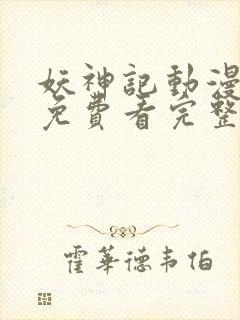 妖神記動漫
免費看完整
霍華德韦伯